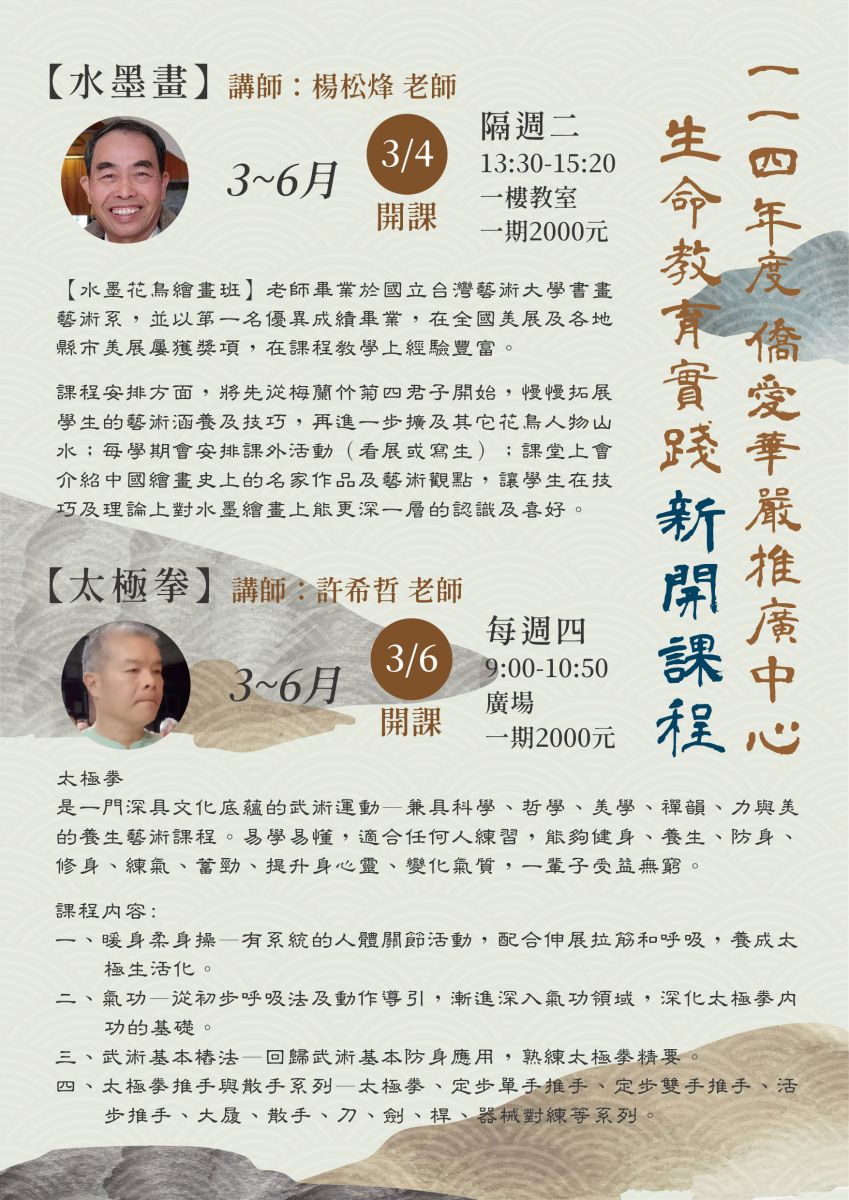 一一四年度 僑愛華嚴推廣中心
生命教育實踐 新開課程
【水墨畫】講師：楊松烽 老師
3~6月
3/4
開課
隔週二
13:30-15:20
一樓教室
一期2000元
【水墨花鳥繪畫班】老師畢業於國立台灣藝術大學書畫
藝術系，並以第一名優異成績畢業，在全國美展及各地
縣市美展屢獲獎項，在課程教學上經驗豐富。
課程安排方面，將先從梅蘭竹菊四君子開始，慢慢拓展
學生的藝術涵養及技巧，再進一步擴及其它花鳥人物山
水；每學期會安排課外活動（看展或寫生）；課堂上會
介紹中國繪畫史上的名家作品及藝術觀點，讓學生在技
巧及理論上對水墨繪畫上能更深一層的認識及喜好。
【太極拳】講師：許希哲 老師
3~6月
3/6
開課
每週四
9:00-10:50
廣場
一期2000元
太極拳
是一門深具文化底蘊的武術運動—兼具科學、哲學、美學、禪韻、力與美
的養生藝術課程。易學易懂，適合任何人練習，能夠健身、養生、防身、
修身、練氣、蓄勁、提升身心靈、變化氣質，一輩子受益無窮。
課程內容:
一、暖身柔身操—有系統的人體關節活動，配合伸展拉筋和呼吸，養成太
極生活化。
二、氣功—從初步呼吸法及動作導引，漸進深入氣功領域，深化太極拳內
功的基礎。
三、武術基本樁法—回歸武術基本防身應用，熟練太極拳精要。
四、太極拳推手與散手系列—太極拳、定步單手推手、定步雙手推手、活
步推手、大履、散手、刀、劍、桿、器械對練等系列。